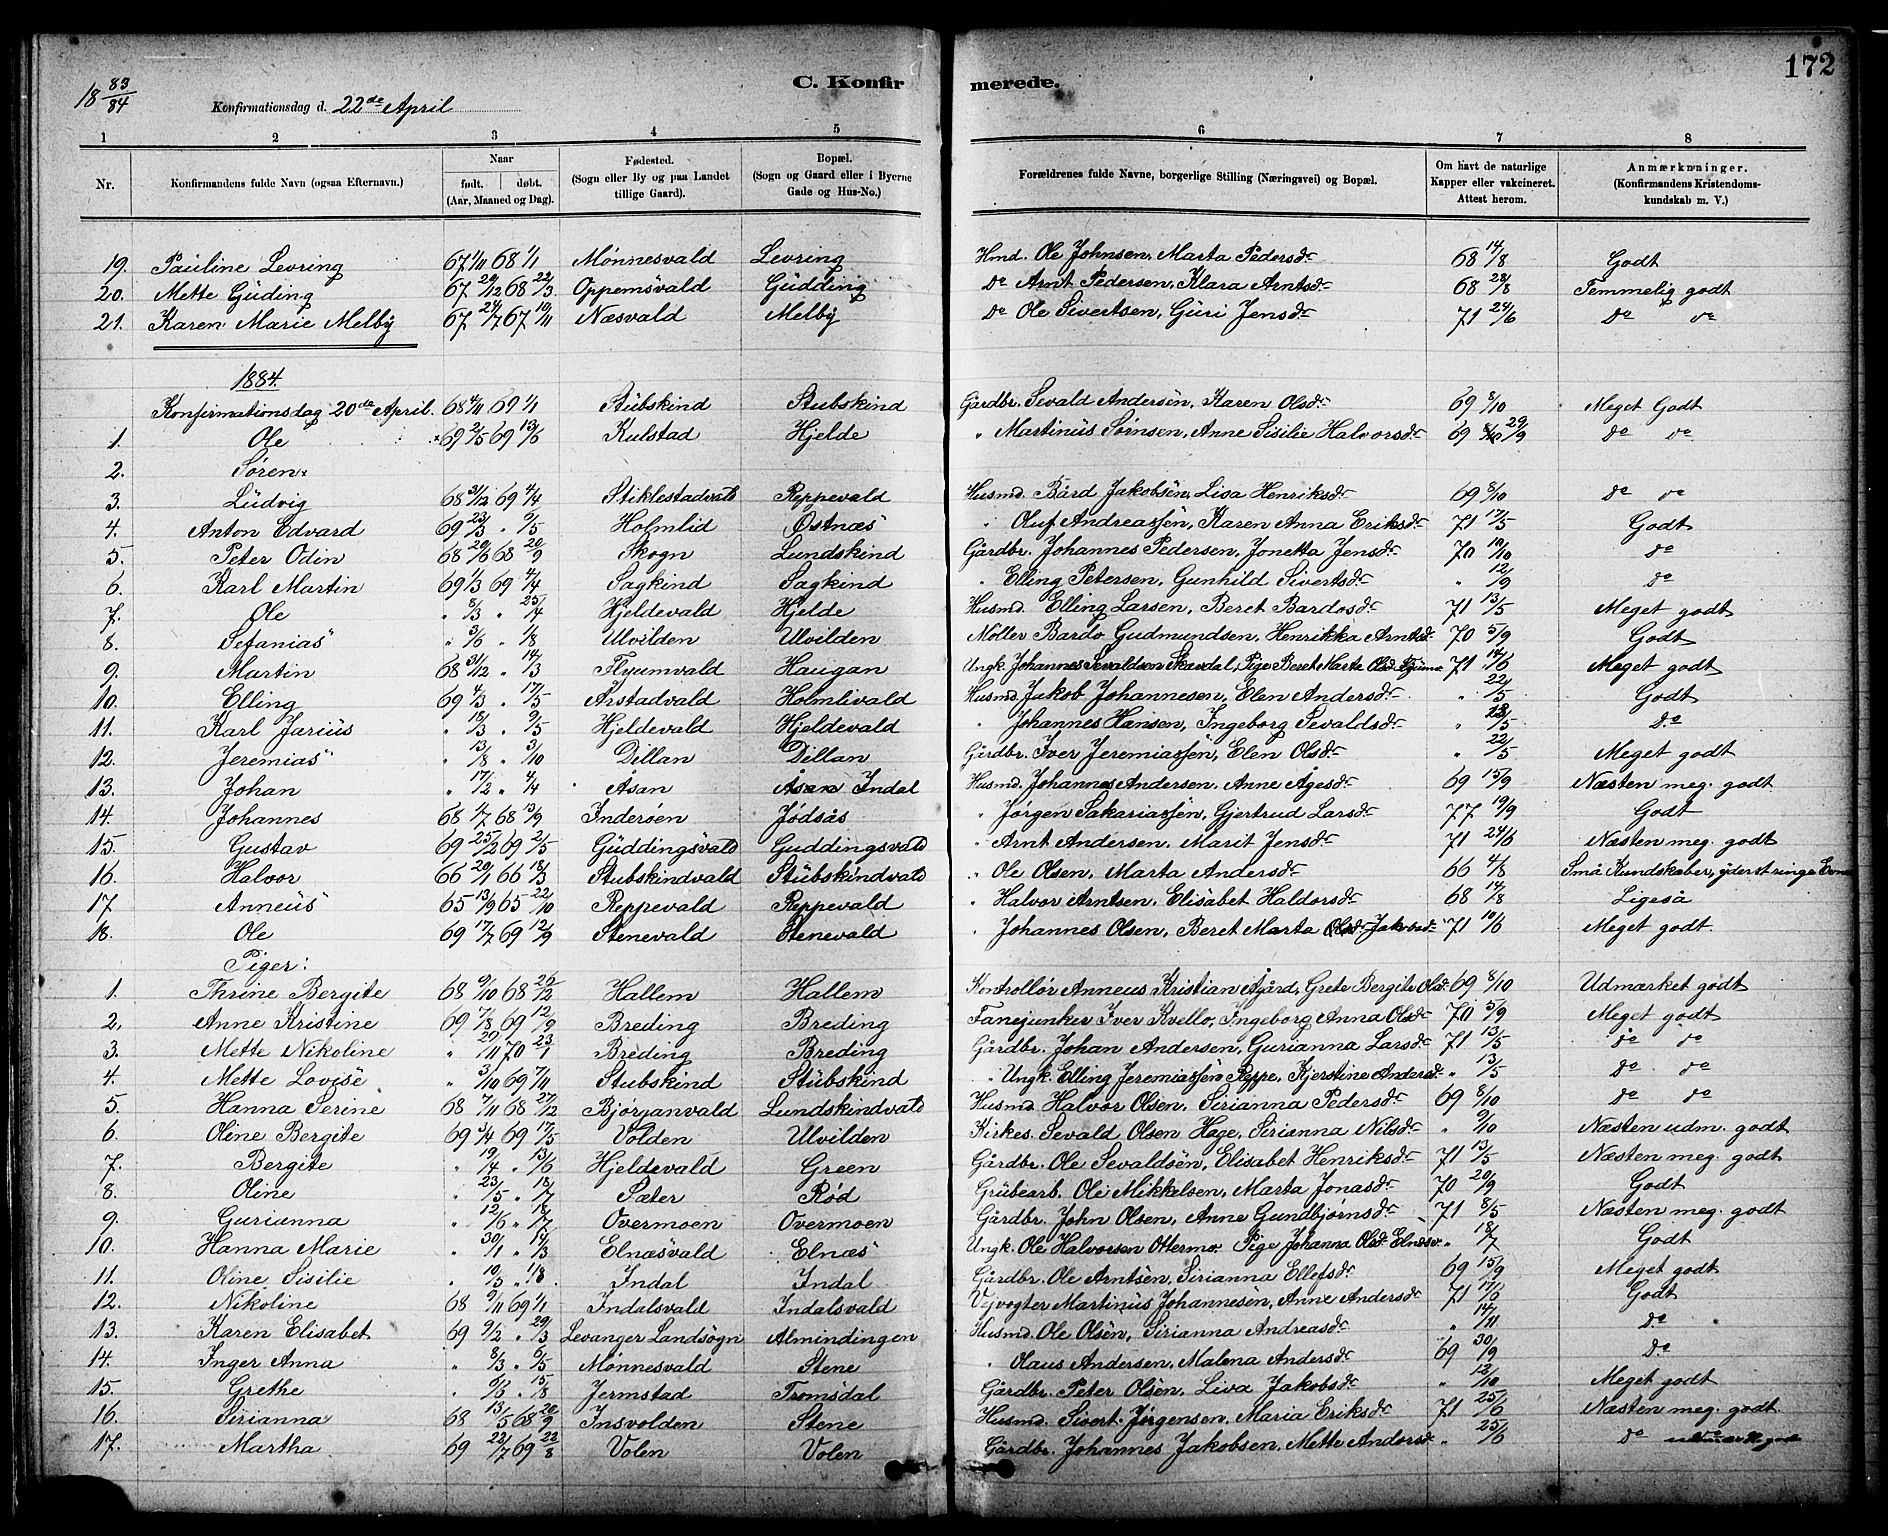 18 83/84
Konfirmationsdag d. 22de April
C. Konfirmerede.
172
1 2 3 4 5 6 7 8
Nr. | Konfirmandens fulde Navn (ogsaa Efternavn.) | Naar født. døbt. (Aar, Maaned og Dag). | Fødested. (Sogn eller By og paa Landet tillige Gaard). | Bopæl. (Sogn og Gaard eller i Byerne Gade og Hus-No.) | Forældrenes fulde Navne, borgerlige Stilling (Næringsvei) og Bopæl. | Om havt de naturlige Kapper eller vakcineret. Attest herom. | Anmærkninger. (Konfirmandens Kristendomskundskab m. V.)
19. Pauline Levring 67 1/11 68 1/1 Mønnesvald Levring Hmd. Ole Johnsen, Marta Pedersdr 68 14/8 Godt
20. Mette Guding 67 29/12 68 22/3 Oppemsvald Gudding Do Arnt Pedersen, Klara Arntsdr 68 28/8 Temmelig godt
21. Karen Marie Melby 67 24/7 67 10/11 Næsvald Melby Do Ole Sivertsen, Guri Jensdr 71 24/6 Do do
1884.
Konfirmationsdag 20de April. 68 4/11 69 1/1 Stubskind Stubskind Gårdbr. Sevald Andersen, Karen Olsdr 69 8/10 Meget Godt
1. Ole 69 2/5 69 13/6 Kulstad Hjelde " Martinus Sørnsen, Anne Sisilie Halvorsdr 69 29/9 do do
2. Søren
3. Ludvig 68 31/12 69 4/4 Stiklestadvald Reppevald Husmd. Bård Jakobsen, Lisa Henriksdr 69 8/10 do do
4. Anton Edvard 69 23/3 " 6/5 Holmlid Østnæs " Oluf Andreassen, Karen Anna Eriksdr 71 17/5 Godt
5. Peter Odin 68 20/6 68 20/9 Skogn Lundskind Gårdbr. Johannes Pedersen, Jonetta Jensdr 70 10/10 do
6. Karl Martin 69 1/3 69 4/4 Sagkind Sagkind " Elling Petersen, Gunhild Sivertsdr " 12/9 do
7. Ole " 8/3 " 25/4 Hjeldevald Hjelde Husmd. Elling Larsen, Beret Bardosdr 71 13/5 Meget godt
8. Sefanias " 3/6 " 1/8 Ulvilden Ulvilden Møller Bardo Gudmundsen, Henrikka Arntsdr 70 5/9 Godt
9. Martin 68 31/12 " 14/3 Flyumvald Haugan Ungk. Johannes Sevaldsen Skavdal, Pige Beret Marta Olsdr 71 14/6 Meget godt
10. Elling 69 4/3 " 17/5 Arstadvald Holmlivald Husmd. Jakob Johannesen, Elen Andersdr " 22/5 Godt
11. Karl Jarius " 18/3 " 9/5 Hjeldevald Hjeldevald " Johannes Hansen, Ingeborg Sevaldsdr " /5 Do
12. Jeremias " 13/8 " 3/10 Dillan Dillan Gårdbr. Iver Jeremiassen, Elen Olsdr " 22/5 Meget godt
13. Johan " 17/2 " 4/4 Åsan Åsan Indal Husmd. Johannes Andersen, Anne Ågesdr 69 15/9 Næsten meg. godt
14. Johannes 68 4/7 68 13/9 Inderøen Jødsås " Jørgen Sakariassen, Gjertrud Larsdr 77 19/9 Godt
15. Gustav 69 25/2 69 2/5 Guddingsvald Guddingsvald " Arnt Andersen, Marit Jensdr 71 24/6 Næsten meg. godt
16. Halvor 66 20/1 66 18/3 Stubskindvald Stubskindvald " Ole Olsen, Marta Andersdr 66 4/8 Små Kundskaber, yderst ringe Evner
17 Anneus 65 13/9 65 22/10 Reppevald Reppevald " Halvor Arntsen, Elisabet Haldorsdr 68 14/8 Ligeså
18. Ole 69 17/7 69 12/9 Stenevald Stenevald " Johannes Olsen, Beret Marta Jakobsdr 71 10/6 Meget godt.
Piger:
1. Thrine Bergite 68 9/10 68 26/12 Hallem Hallem Kontrollør Anneus Kristian Ågård, Grete Bergite Olsdr 69 8/10 Udmærket godt
2. Anne Kristine 69 7/8 69 12/9 Breding Breding Fanejunker Iver Kvello, Ingeborg Anna Olsdr 70 5/9 Meget godt
3. Mette Nikoline " 29/11 70 23/1 Breding Breding Gårdbr. Johan Andersen, Gurianna Larsdr 71 13/5 do do
4. Mette Lovise " 3/10 69 7/11 Stubskind Stubskind " Ungk. Elling Jeremiassen Reppe, Kjerstine Andersdr " 13/5 Do do
5. Hanna Serine 68 7/11 68 27/12 Bjørjanvald Lundskindvald Husmd. Halvor Olsen, Sirianna Pedersdr 69 8/10 do do
6. Oline Bergite 69 3/4 69 17/5 Volden Ulvilden Kirkes. Sevald Olsen Hage, Sirianna Nilsdr " 9/10 Næsten udm. godt
7. Bergite " 19/4 " 13/6 Hjeldevald Green Gårdbr. Ole Sevaldsen, Elisabet Henriksdr 71 13/5 Næsten meg. godt
8. Oline " 23/5 " 18/7 Sæter Rød Grubearb. Ole Mikkelsen, Marta Jonasdr 70 20/9 Godt
9. Gurianna " 12/6 " 18/7 Overmoen Overmoen Gårdbr. John Olsen, Anne Gundbjørnsdr 71 8/5 Næsten meg. godt
10. Hanna Marie " 30/1 " 14/3 Elnæsvald Elnæs Ungk. Ole Halvorsen Ottermo, Pige Johanna Olsdr Elnæsv " 18/7 Godt
11. Oline Sisilie " 10/5 " 1/8 Indal Indal Gårdbr. Ole Arntsen, Sirianna Ellefsdr 69 15/9 Meget godt
12. Nikoline 68 9/11 69 1/1 Indalsvald Indalsvald Vejvogter Martinus Johannesen, Anne Andersdr 71 17/6 Godt
13. Karen Elisabet 69 9/2 " 29/3 Levanger Landsogn Almindingen Husmd. Ole Olsen, Sirianna Andreasdr " 14/11 Do
14. Inger Anna " 8/3 " 6/5 Mønnesvald Stene " Olaus Andersen, Malena Andersdr 69 30/9 Do
15. Grethe " 6/6 " 15/8 Jermstad Tromsdal Gårdbr. Peter Olsen, Liva Jakobsdr " 12/10 Meget godt
16. Sirianna 68 13/5 68 20/9 Insvolden Stene Husmd. Sivert Jørgensen, Maria Eriksdr 71 25/6 Næsten meg. godt.
17. Martha 69 22/7 69 22/8 Volen Volen Gårdbr. Johannes Jakobsen, Mette Andersdr " 25/6 Do